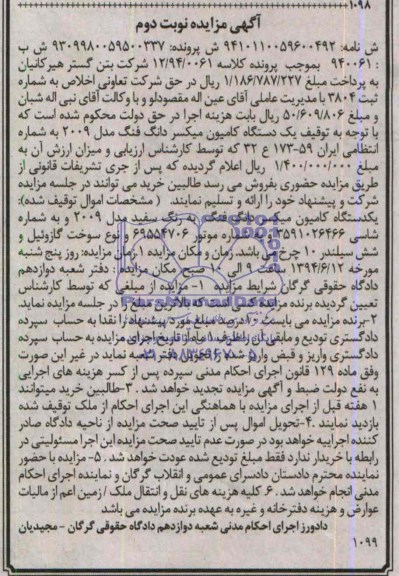 ۱۰۹۸
آگهی مزایده نوبت دوم
ش نامه: ۹۴۱۰۱۱۰۰۵۹۶۰۰۴۹۲ ش پرونده: ۹۳۰۹۹۸۰۰۵۹۵۰۰۳۳۷ ش ب
: ۹۴۰۰۶۱ بموجب پرونده کلاسه ۱۲/۹۴/۰۰۶۱ شرکت بتن گستر هیرکانیان
به پرداخت مبلغ ۱/۱۸۶/۷۸۷/۲۲۷ ریال در حق شرکت تعاونی اخلاص به شماره
ثبت ۳۸۰۴ با مدیریت عاملی آقای عین اله مقصودلو و با وکالت آقای نبی اله شبان
و مبلغ ۵۰/۶۰۹/۸۰۶ ریال بابت هزینه اجرا در حق دولت محکوم شده است که
با توجه به توقیف یک دستگاه کامیون میکسر دانگ فنگ مدل ۲۰۰۹ به شماره
انتظامی ایران ۵۹-۱۷۳ ع ۳۲ که توسط کارشناس ارزیابی و میزان ارزش آن به
مبلغ ۱/۴۰۰/۰۰۰/۰۰۰ ریال اعلام گردیده که پس از جری تشریفات قانونی از
طریق مزایده حضوری بفروش می رسد طالبین خرید می توانند در جلسه مزایده
شرکت و پیشنهاد خود را ارائه و تسلیم نمایند. ( مشخصات اموال توقیف شده):
یکدستگاه کامیون میکسر دانگ فنگ به رنگ سفید مدل ۲۰۰۹ و به شماره
شاسی ۳۵۹۱۰۲۶۴۶۶ و شماره موتور ۶۹۵۵۴۷۰۶ و نوع سوخت گازوئیل و
شش سیلندر ۱۰ چرخ می باشد. زمان و مکان مزایده ۱ زمان مزایده: روز پنج شنبه
مورخه ۱۳۹۴/۶/۱۲ ساعت ۹ الی ۱۰ صبح مکان مزایده : دفتر شعبه دوازدهم
دادگاه حقوقی گرگان شرایط مزایده ۱- مزایده از مبلغی که توسط کارشناس
تعیین گردیده برنده مزایده کسی است که بالاترین مبلغ را در جلسه مزایده نماید.
۲-برنده مزایده می بایست ۱۰درصد مبلغ مورد پیشنهاد را نقدا به حساب سپرده
دادگستری تودیع و مابقی آن را ظرف ۱ ماه از تاریخ اجرای مزایده به حساب سپرده
دادگستری واریز و قبض واریز شده را تحویل دفتر شعبه نماید در غیر این صورت
وفق ماده ۱۲۹ قانون اجرای احکام مدنی سپرده پس از کسر هزینه های اجرایی
به نفع دولت ضبط و آگهی مزایده تجدید خواهد شد. ۳-طالبین خرید میتوانند
۱ هفته قبل از اجرای مزایده با هماهنگی این اجرای احکام از ملک توقیف شده
بازدید نمایند. ۴-تحویل اموال پس از تایید صحت مزایده از ناحیه دادگاه صادر
کننده اجراییه خواهد بود در صورت عدم تایید صحت مزایده این اجرا مسئولیتی در
رابطه با خریدار ندارد فقط مبلغ تودیع شده عودت خواهد شد. ۵- مزایده با حضور
نماینده محترم دادستان دادسرای عمومی و انقلاب گرگان و نماینده اجرای احکام
مدنی انجام خواهد شد. ۶- کلیه هزینه های نقل و انتقال ملک / زمین اعم از مالیات
عوارض و هزینه دفترخانه و غیره به عهده برنده مزایده می باشد
دادورز اجرای احکام مدنی شعبه دوازدهم دادگاه حقوقی گرگان - مجیدیان
۱۰۹۹